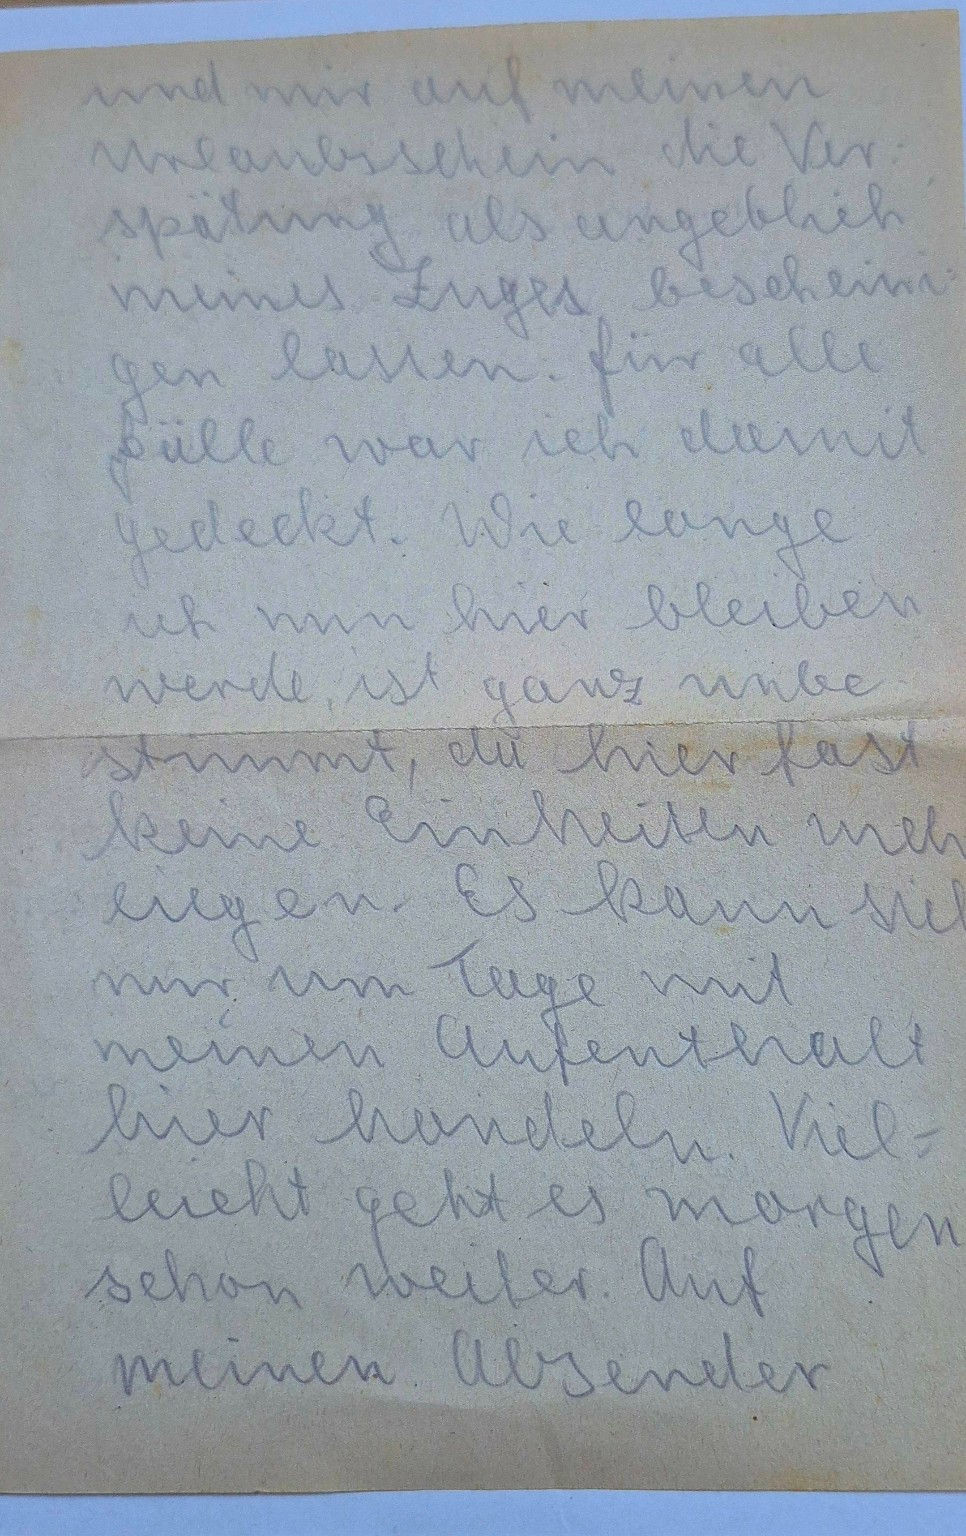 und mir auf meinen
Urlaubsschein die Ver-
spätung als angeblich
meines Zuges bescheini-
gen lassen. für alle
Fälle war ich damit
gedeckt. Wie lange
ich nun hier bleiben
werde, ist ganz unbe-
stimmt, da hier fast
keine Einheiten mehr
liegen. Es kann sich
nur um Tage mit
meinen Aufenthalt
hier handeln. Viel=
leicht geht es morgen
schon weiter. Auf
meinen Absender